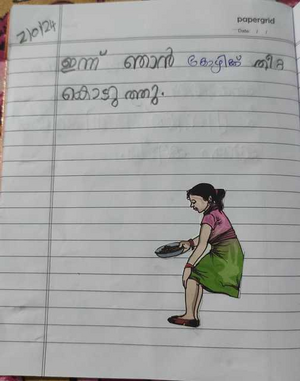 papergrid
Date: / /
ഇന്ന് ഞാൻ കോഴിക്ക് തീറ്റ
കൊടുത്തു.